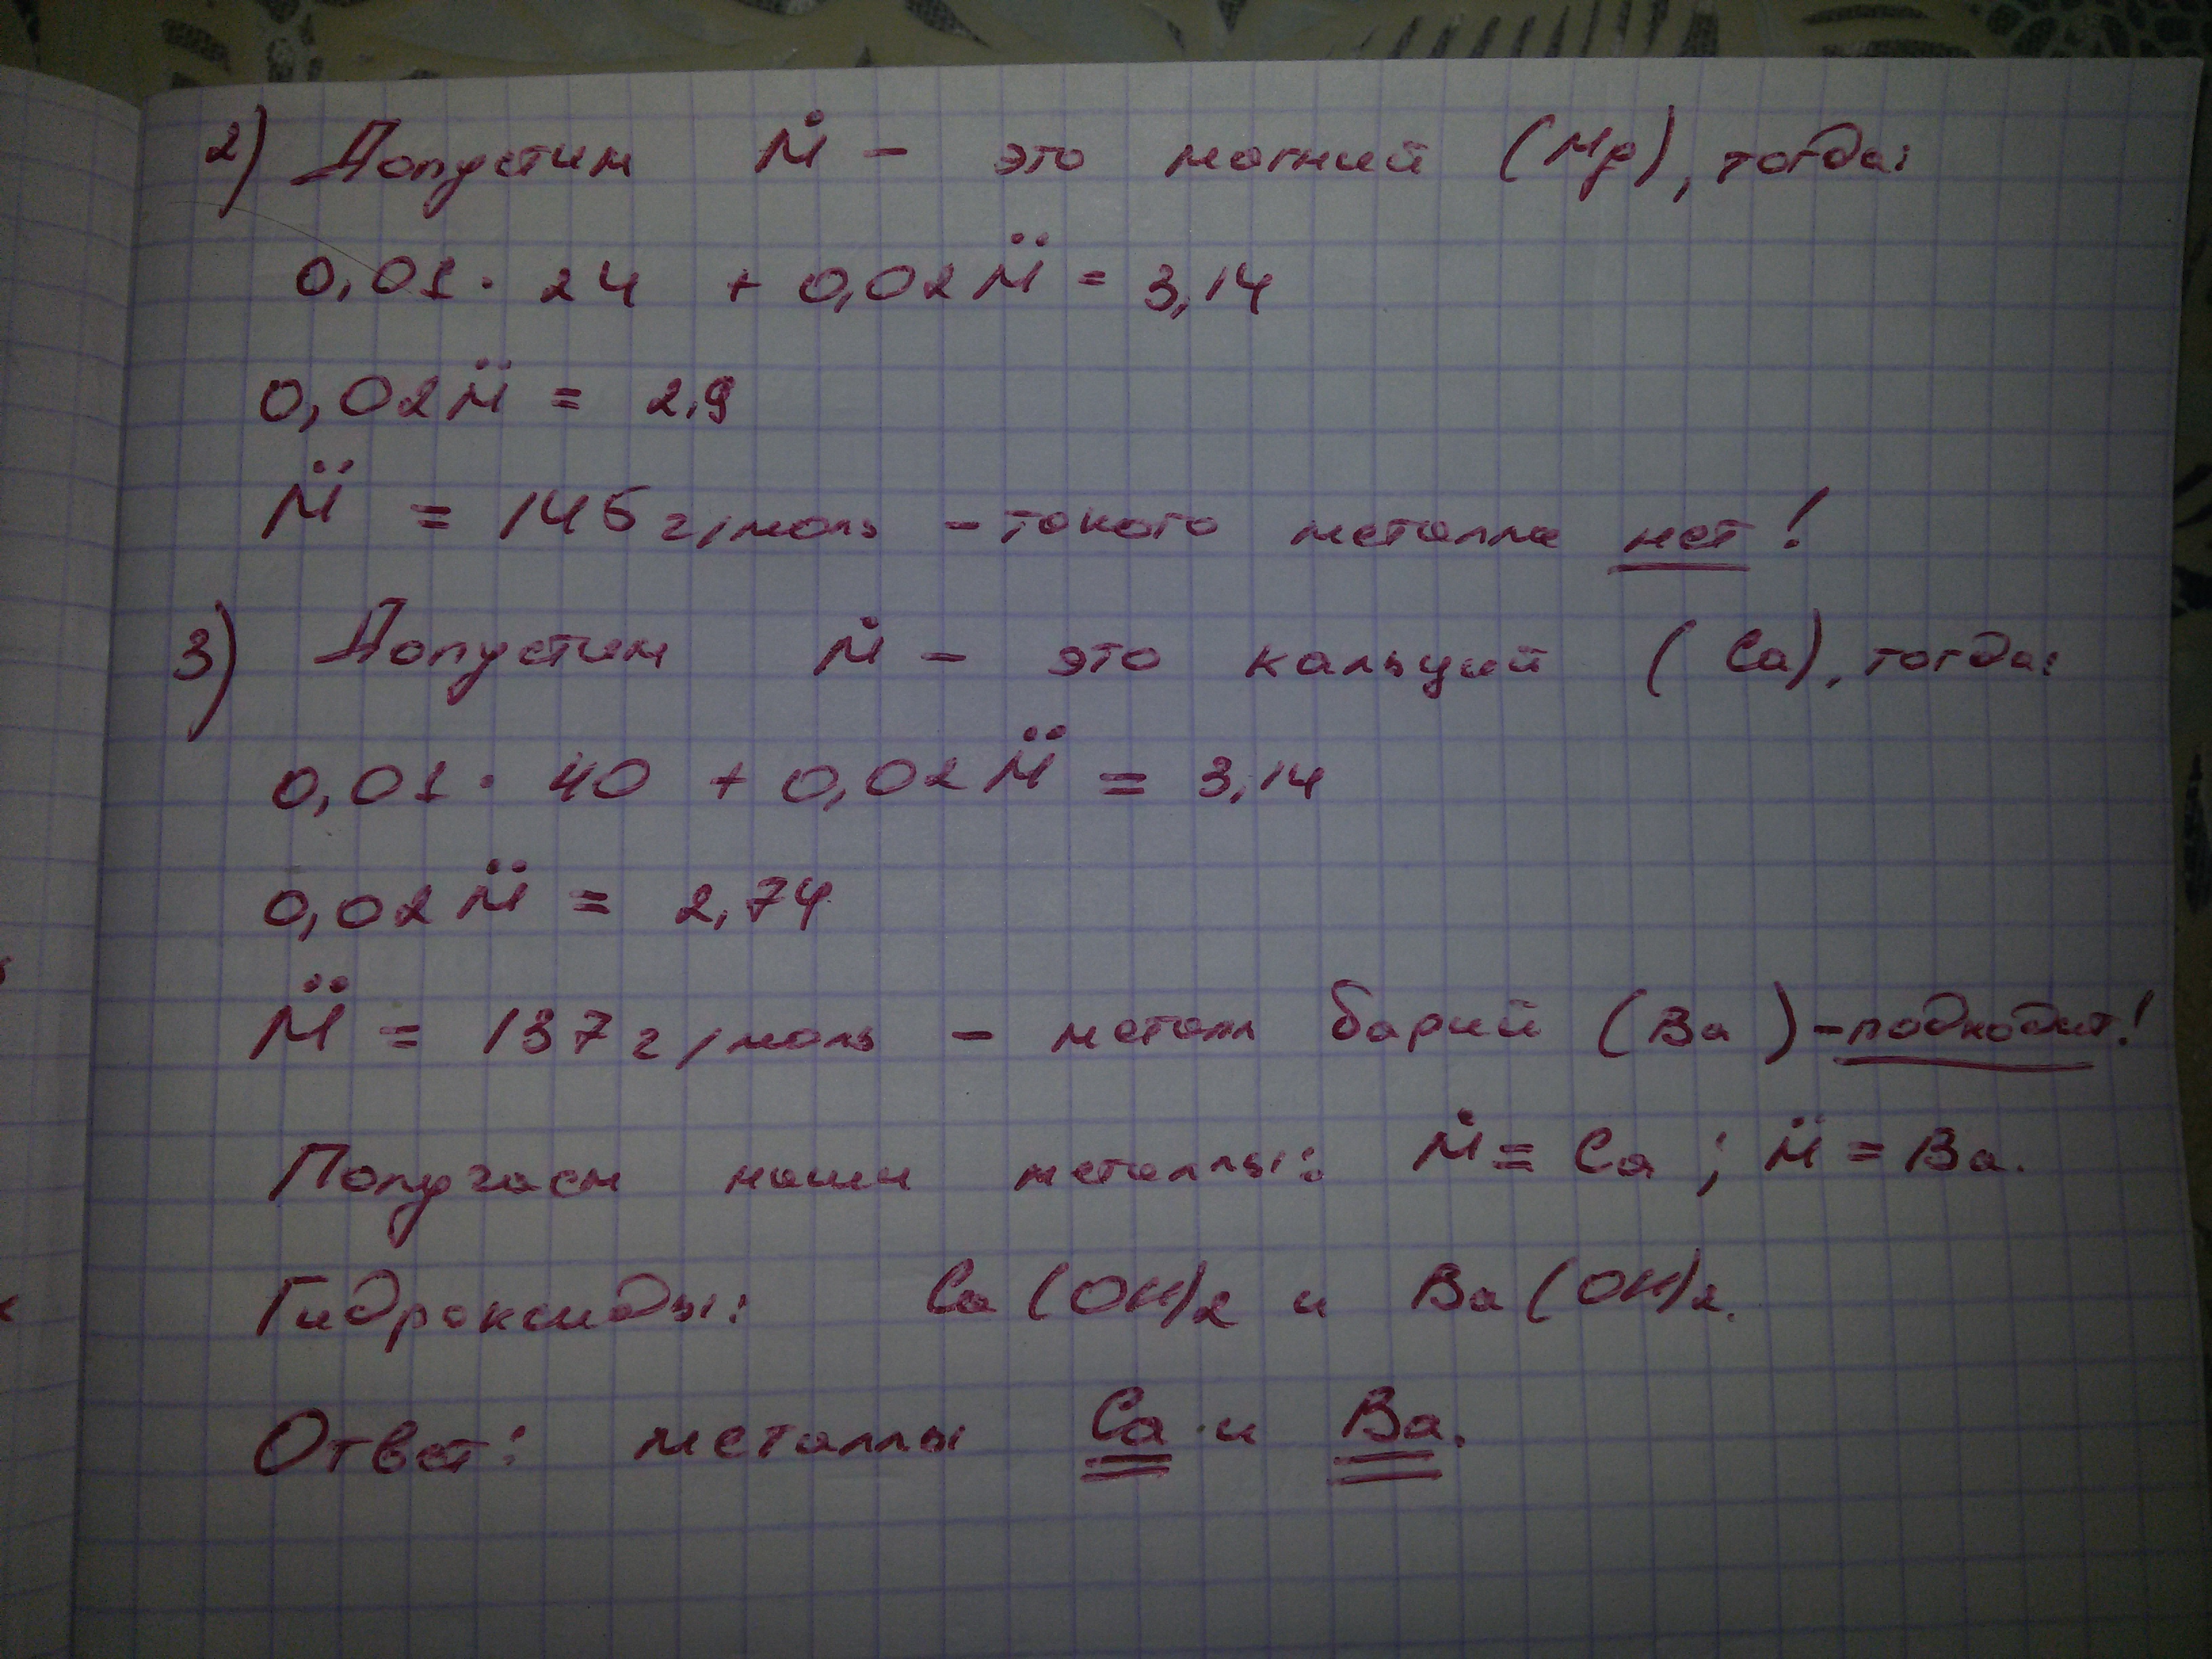 2) Допустим Ṁ – это магний (Mg), тогда:
0,01 · 24 + 0,02M̈ = 3,14
0,02M̈ = 2,9
M̈ = 145 г/моль – такого металла нет!
3) Допустим Ṁ – это кальций (Ca), тогда:
0,01 · 40 + 0,02M̈ = 3,14
0,02M̈ = 2,74
M̈ = 137 г/моль – металл барий (Ba) – подходит!
Получаем наши металлы: Ṁ = Ca ; M̈ = Ba.
Гидроксиды: Ca(OH)2 и Ba(OH)2.
Ответ: металлы Ca и Ba.